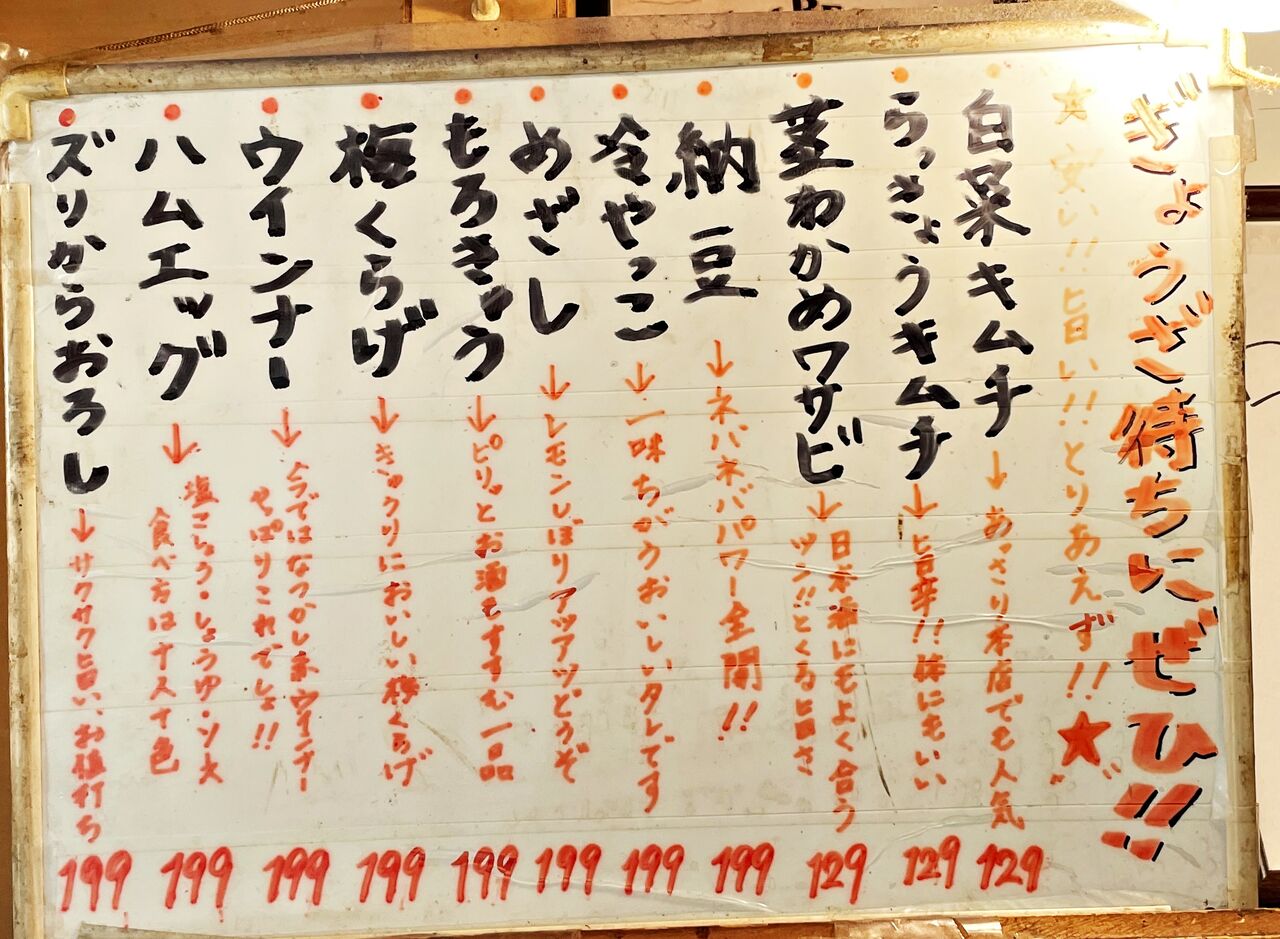 ぎょうざ待ちにぜひ!!
☆安い!!旨い!!とりあえず!!★
白菜キムチ
↓あっさり本店でも人気
129
らっきょうキムチ
↓旨辛!!体にもいい
129
茎わかめワサビ
↓日本酒にもよく合う
ツン!!とくる旨さ
129
納豆
↓ネバネバパワー全開!!
199
冷やっこ
↓一味ちがうおいしいタレです
199
めざし
↓レモンしぼりアッアツどうぞ
199
もろきゅう
↓ピリッとお酒もすすむ一品
199
梅くらげ
↓きゅうりにおいしい梅くらげ
199
ウインナー
↓今ではなつかし赤ウインナー
やっぱりこれでしょ!!
199
ハムエッグ
↓塩こしょう・しょうゆ・ソース
食べ方は十人十色
199
ズリからおろし
↓サクサク旨い、お値打ち
199